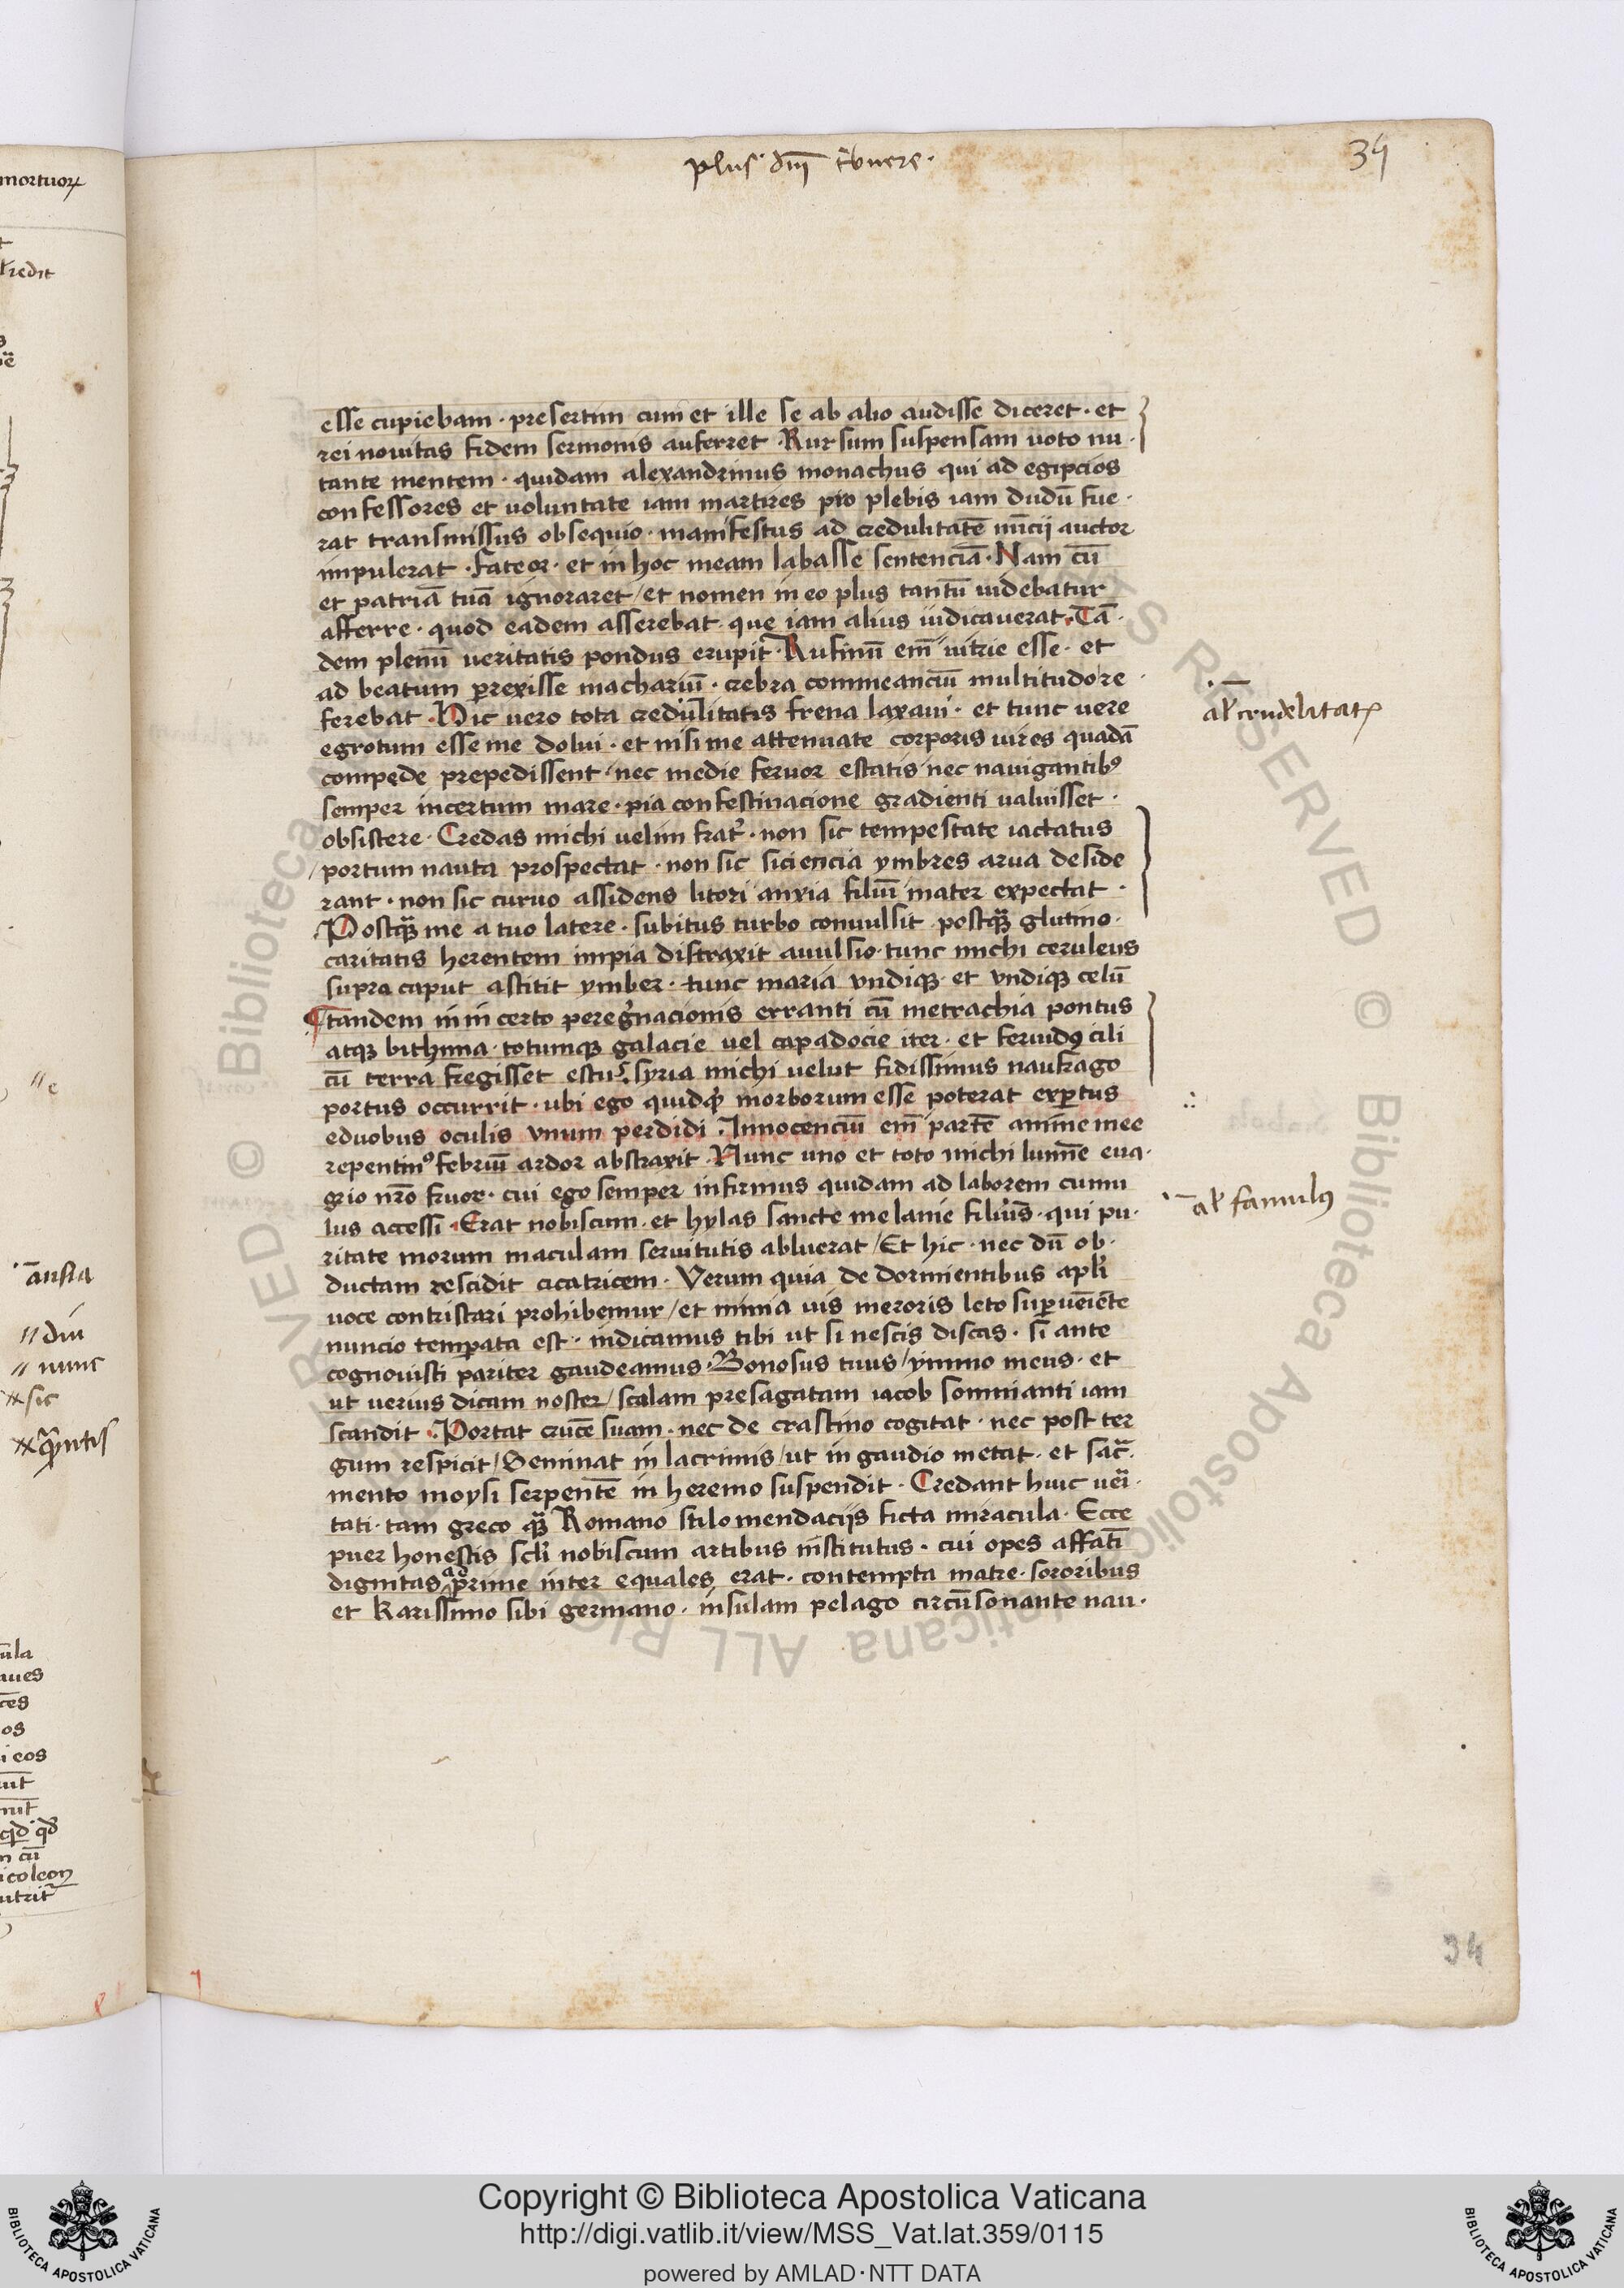 plus dm̄ tbuere·
34
esse cupiebam · presertim cum et ille se ab alio audisse diceret · et
rei nouitas fidem sermonis auferret · Rursum suspensam uoto nu·
tante mentem · quidam alexandrinus monachus qui ad egipcios
confessores et uoluntate iam martires pio plebis iam dudū fue·
rat transmissus obsequio · manifestus ad credulitatē nūcij auctor
impulerat · fateor · et in hoc meam labasse sentenciā · Nam cū
et patriā tuā ignoraret / et nomen in eo plus tantū uidebatur
afferre · quod eadem asserebat que iam alius iudicauerat · Tā·
dem plenū ueritatis pondus erupit · Rufinū em̄ nitrie esse · et
ad beatum perexisse machariū · crebra commeanciū multitudo re·
ferebat · Hic uero tota credulitatis frena laxaui · et tunc uere
egrotum esse me dolui · et nisi me attenuate corporis uires quadā
compede prepedissent · nec medie feruor estatis nec nauigantibꝰ
semper incertum mare · pia confestinacione gradienti ualuisset ·
obsistere · Credas michi uelim frat̄ · non sic tempestate iactatus
portum nauta prospectat · non sic siciencia ymbres arua deside
rant · non sic curuo assidens litori anxia filiū mater expectat ·
Postqꝫ me a tuo latere · subitus turbo conuulsit · postqꝫ glutino·
caritatis herentem impia distraxit auulsio · tunc michi ceruleus
supra caput astitit ymber · tunc maria vndiqꝫ et vndiqꝫ celū
¶tandem in incerto peregrinacionis erranti cū metrachia pontus
atqꝫ bithinia · totumqꝫ galacie uel capadocie iter · et feruidꝰ cili
cū terra fregisset estuˢ · syria michi uelut fidissimus naufrago
portus occurrit · ubi ego quidqͥd morborum esse poterat expertus
eduobus oculis vnum perdidi · Innocenciū em̄ partē anime mee
repentinꝰ febriū ardor abstraxit · Nunc uno et toto michi lumīe eua·
grio nr̄o fruor · cui ego semper infirmus quidam ad laborem cumu
lus accessi · Erat nobiscum · et hylas sancte melanie filius · qui pu·
ritate morum maculam seruitutis abluerat / Et hic · nec dū ob·
ductam rescidit cicatricem · Verum quia de dormientibus apl̄i
uoce contristari prohibemur / et nimia uis meroris leto superueniēte
nuncio temperata est · indicamus tibi ut si nescis discas · si ante
cognouisti pariter gaudeamus · Bonosus tuus / ymmo meus · et
ut uerius dicam noster / scalam presagatam iacob somnianti iam
scandit · Portat crucē suam · nec de crastino cogitat · nec post ter
gum respicit / Seminat in lacrimis / ut in gaudio metat · et sacͣ·
mento moysi serpentē in heremo suspendit · Credant huic ueri·
tati · tam greco qꝫ Romano stilo mendacijs ficta miracula · Ecce
puer honestis scl̄i nobiscum artibus institutus · cui opes affatī
dignitas ad prime inter equales erat · contempta matre · sororibus
et karissimo sibi germano · insulam pelago circūsonante nau·
al̄ crudelitatꝭ
al̄ famulꝰ
mortuoꝝ
ansia
//e
//diu
//nunc
sic
34
Copyright © Biblioteca Apostolica Vaticana
http://digi.vatlib.it/view/MSS_Vat.lat.359/0115
powered by AMLAD·NTT DATA
BIBLIOTECA APOSTOLICA VATICANA
BIBLIOTECA APOSTOLICA VATICANA